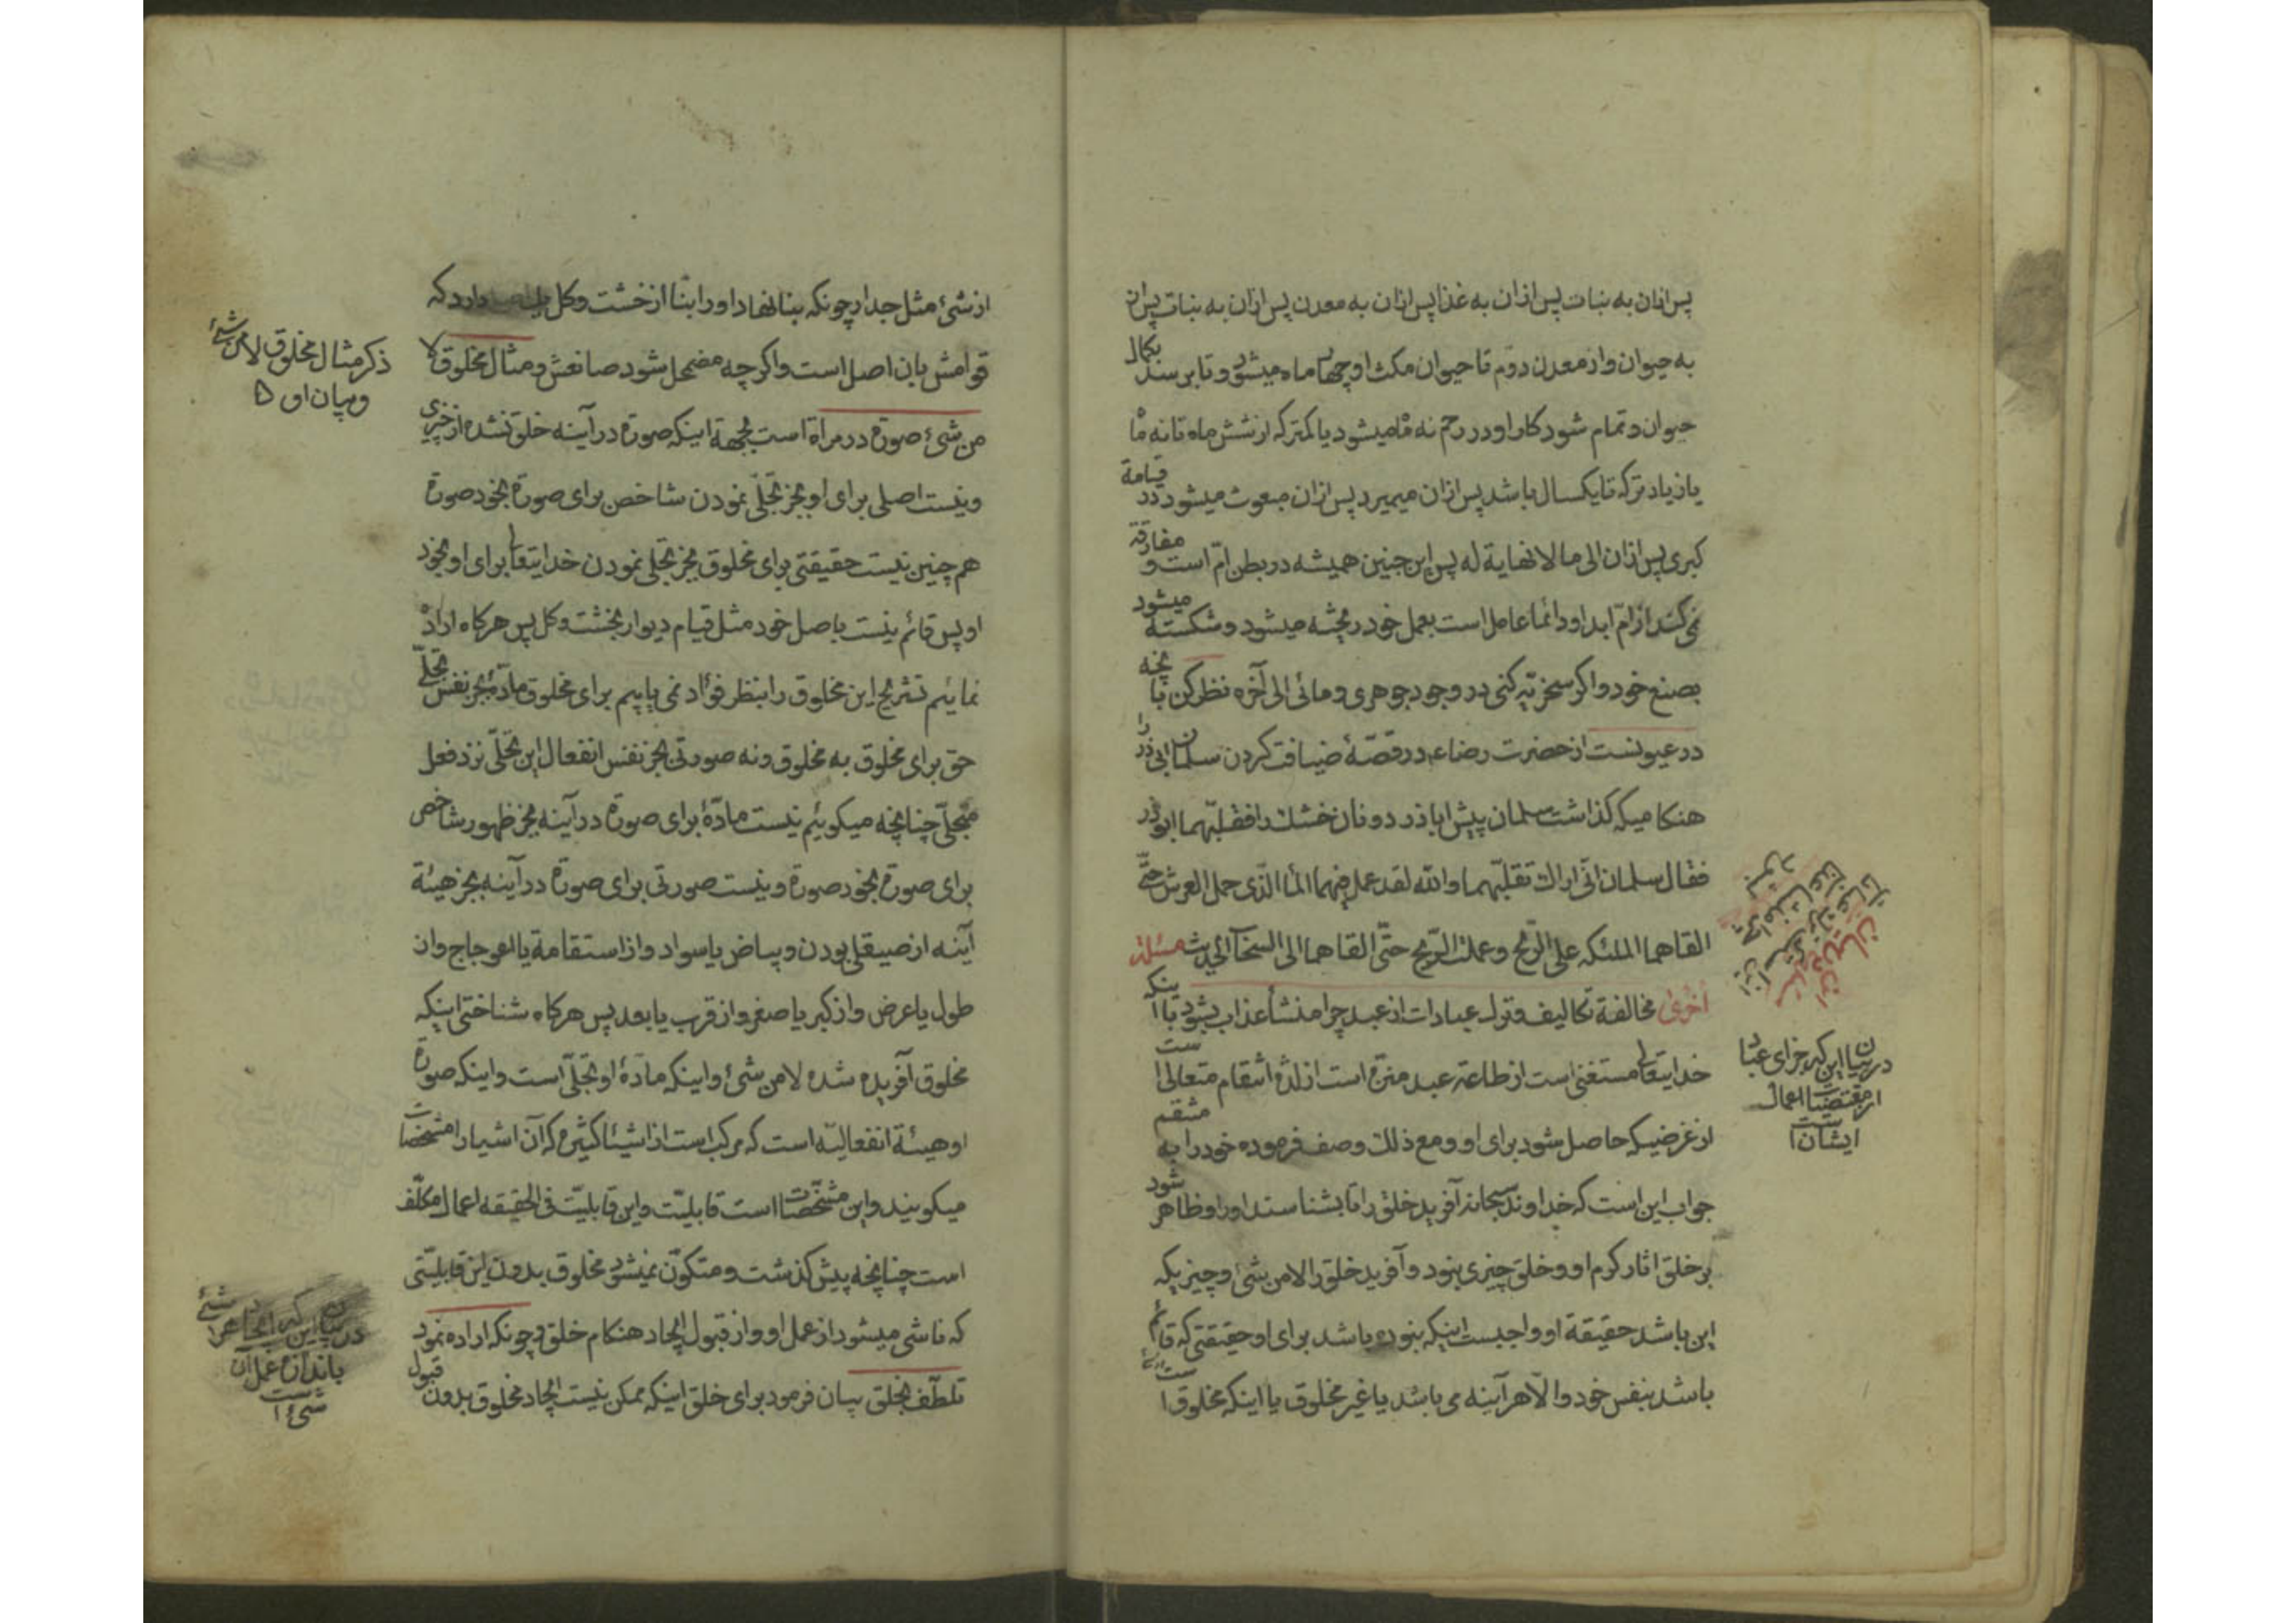 پس ازان به نبات پس ازان به غذا پس ازان به معدن پس ازان به نبات پس ازان
به حیوان واز معدن دوّم تا حیوان مکث او چهار ماه میشود و تا برسند بکمال
حیوان و تمام شود کار او در رحم نه ماه میشود یا کمتر که از شش ماه تا نه ماه
یا زیادتر که تا یکسال باشد پس ازان میمیرد پس ازان مبعوث میشود در قیامة
کبری پس ازان الی ما لا نهایة له پس این جنین همیشه در بطن امّ است و مفارقة
نمی کند از امّ ابدا و دائما عامل است بعمل خود ریخته میشود و شکسته میشود
بصنع خود و اکر سخریّه کنی در وجود جوهری و مائی الی آخره نظر کن بآنچه
در عیونست از حضرت رضاء در قصّهٔ ضیافت کردن سلمان ابی ذر را
هنکامیکه کذاشت سلمان پیش اباذر دو نان خشک را فقلّبهما ابوذر
فقال سلمان انّی اراک تقلبّهما والله لقد عمل فیهما الماء الّذی حمل العرش حتّی
القاهما الملئکه علی الرّیح و عملت الرّیح حتّی القاهما الی السّحاب الحدیث مسئلة
اخری مخالفة تکالیف و ترک عبادات از عبد چرا منشأ عذاب بشود با اینکه
خدایتعالی مستغنی است از طاعة عبد منزّه است از لذّة انتقام متعالی است
از غرضیکه حاصل شود برای او و مع ذلک وصف فرموده خود را به منتقم
جواب این است که خداوند سبحانه آفرید خلق را تا بشناسند او را و ظاهر شود
بر خلق اثار کرم او و خلق چیزی نبود و آفرید خلق را لا من شیء و چیزیکه
این باشد حقیقة او واجبست اینکه نبوده باشد برای او حقیقتی که قائم
باشد بنفس خود و الّا هر آینه می باشد یا غیر مخلوق یا اینکه مخلوق است
در بیان این که جزای عباد
از مقتضیات اعمال
ایشان است
از شیء مثل جدار چونکه بنا نهاد او را بنا از خشت و کل دارد که
قوامش بان اصل است و اکر چه مضمحل شود صانعش و مثال مخلوق لا
من شیء صورة در مرآة است بجهة اینکه صورة در آینه خلق نشده از چیزی
و نیست اصلی برای او بجز تجلّی نمودن شاخص برای صورة بخود صورة
هم چنین نیست حقیقتی برای مخلوق بجز تجلی نمودن خدایتعالی برای او بخود
او پس قائم نیست باصل خود مثل قیام دیوار بخشت و کل پس هرکاه اراده
نمائیم تشریح این مخلوق را بنظر فؤاد نمی یابیم برای مخلوق مادّهٔ بجز نفس تجلّی
حق برای مخلوق به مخلوق و نه صورتی بجز نفس انفعال این تجلّی نزد فعل
متجلّی چنانچه میکوئیم نیست مادّهٔ برای صورة در آینه بجز ظهور شاخص
برای صورة بخود صورة و نیست صورتی برای صورة در آینه بجز هیئة
آینه از صیقلی بودن و بیاض یا سواد و از استقامة یا اعوجاج و از
طول یا عرض و از کبر یا صغر و از قرب یا بعد پس هرکاه شناختی اینکه
مخلوق آفریده شده لا من شیء و اینکه مادّهٔ او تجلّی است و اینکه صورة
او هیئة انفعالیّه است که مرکب است از اشیاء کثیره که آن اشیا را مشخصات
میکویند و این مشخّصات است قابلیّت و این قابلیّت فی الحقیقه اعمال مکلّف
است چنانچه پیش کذشت و متکوّن نمیشود مخلوق بدون این قابلیّتی
که ناشی میشود از عمل او و از قبول ایجاد هنکام خلق و چونکه اراده نمود
تلطّف بخلق بیان فرمود برای خلق اینکه ممکن نیست ایجاد مخلوق بدون قبول
ذکر مثال مخلوق لا من شیء
و بیان او
در بیان این که ایجاد هر شیء
باندازه عمل آن
شیء است